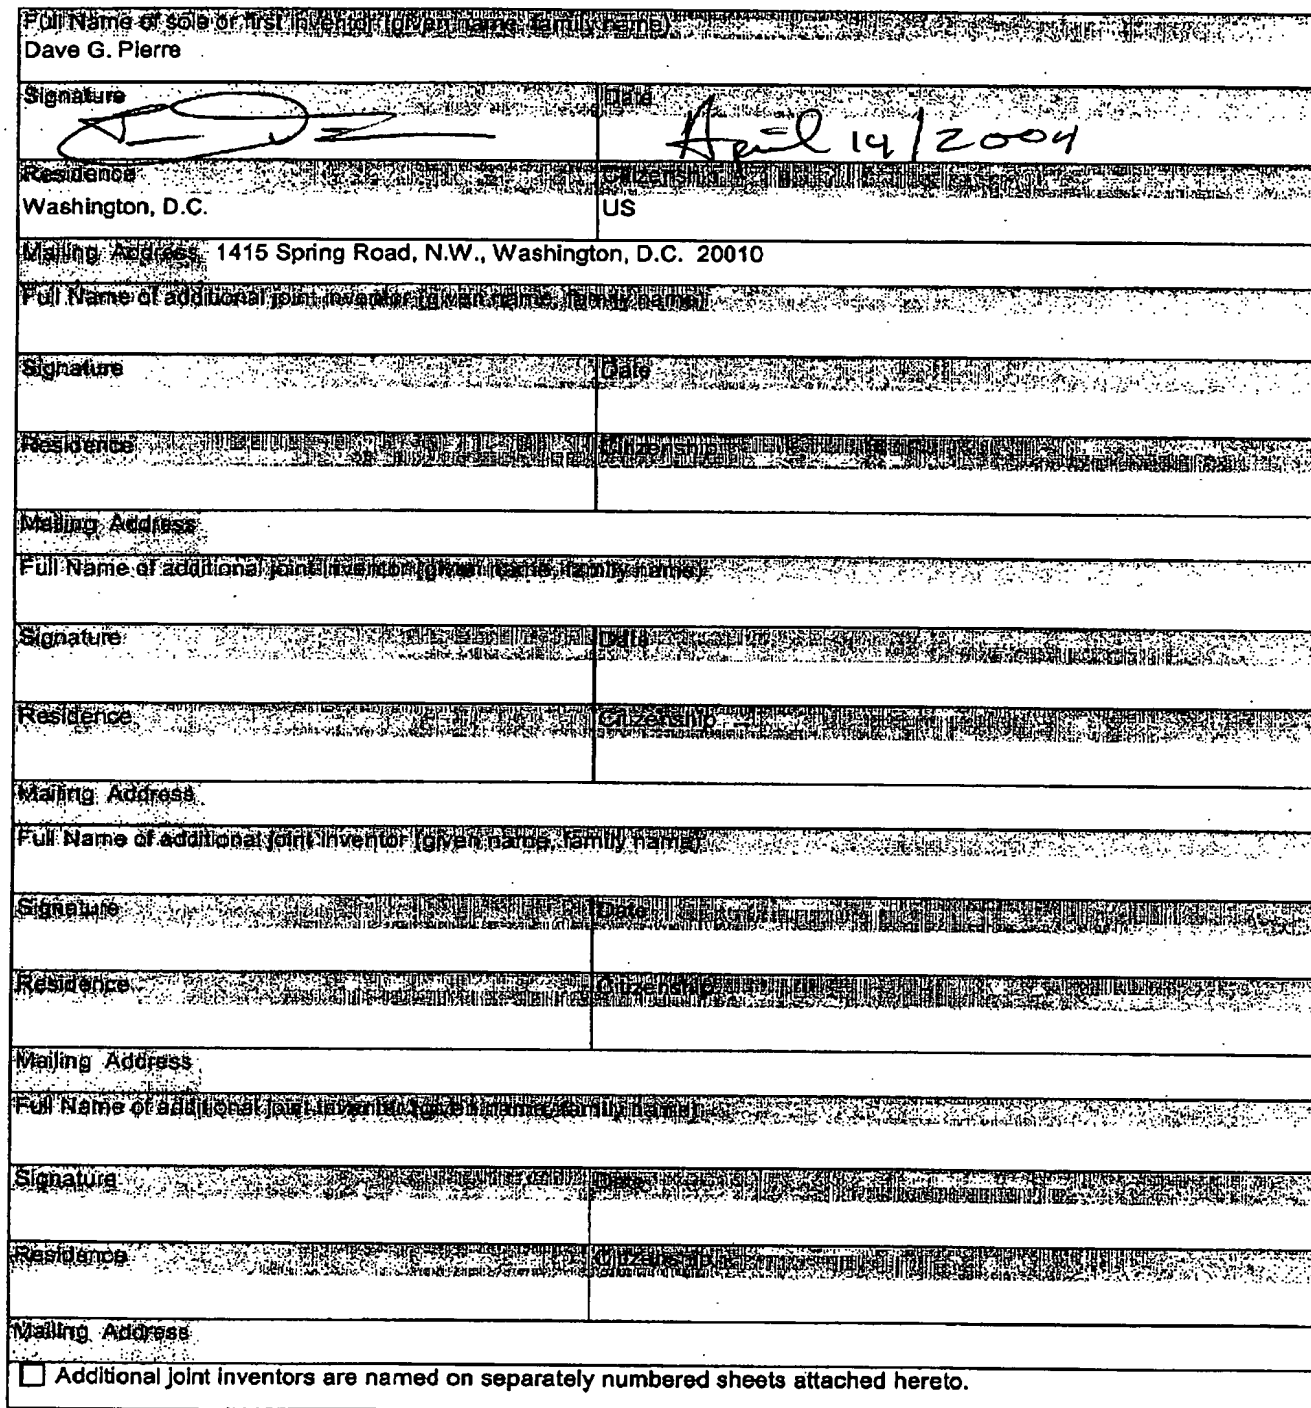 Full Name of sole or first inventor (given name, family name)
Dave G. Pierre
Signature Date
April 14/2004
Residence Citizenship
Washington, D.C. US
Mailing Address 1415 Spring Road, N.W., Washington, D.C. 20010
Full Name of additional joint inventor (given name, family name)
Signature Date
Residence Citizenship
Mailing Address
Full Name of additional joint inventor (given name, family name)
Signature Date
Residence Citizenship
Mailing Address
Full Name of additional joint inventor (given name, family name)
Signature Date
Residence Citizenship
Mailing Address
Full Name of additional joint inventor (given name, family name)
Signature Date
Residence Citizenship
Mailing Address
Additional joint inventors are named on separately numbered sheets attached hereto.